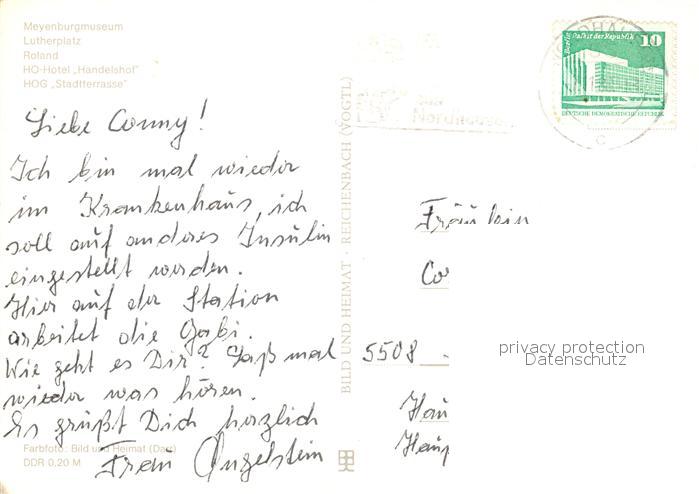 Meyenburgmuseum
Lutherplatz
Roland
HO-Hotel „Handelshof"
HOG „Stadtterrasse"
Liebe Conny!
Ich bin mal wieder
im Krankenhaus, ich
soll auf anderes Insulin
eingestellt werden.
Hier auf der Station
arbeitet die Gabi.
Wie geht es Dir? Laß mal
wieder was hören.
Es grüßt Dich herzlich
Frau Angelstein
Farbfoto: Bild und Heimat (Darr)
DDR 0,20 M
BILD UND HEIMAT · REICHENBACH (VOGTL)
Nordhausen
Berlin Palast der Republik 10
DEUTSCHE DEMOKRATISCHE REPUBLIK
c
Fräulein
Co
5508
Hau
Haup
privacy protection
Datenschutz